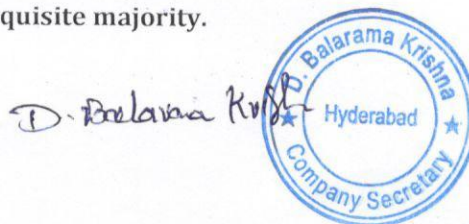 quisite majority.
D. Balarama Krishna
D. Balarama Krishna
Hyderabad
Company Secretary